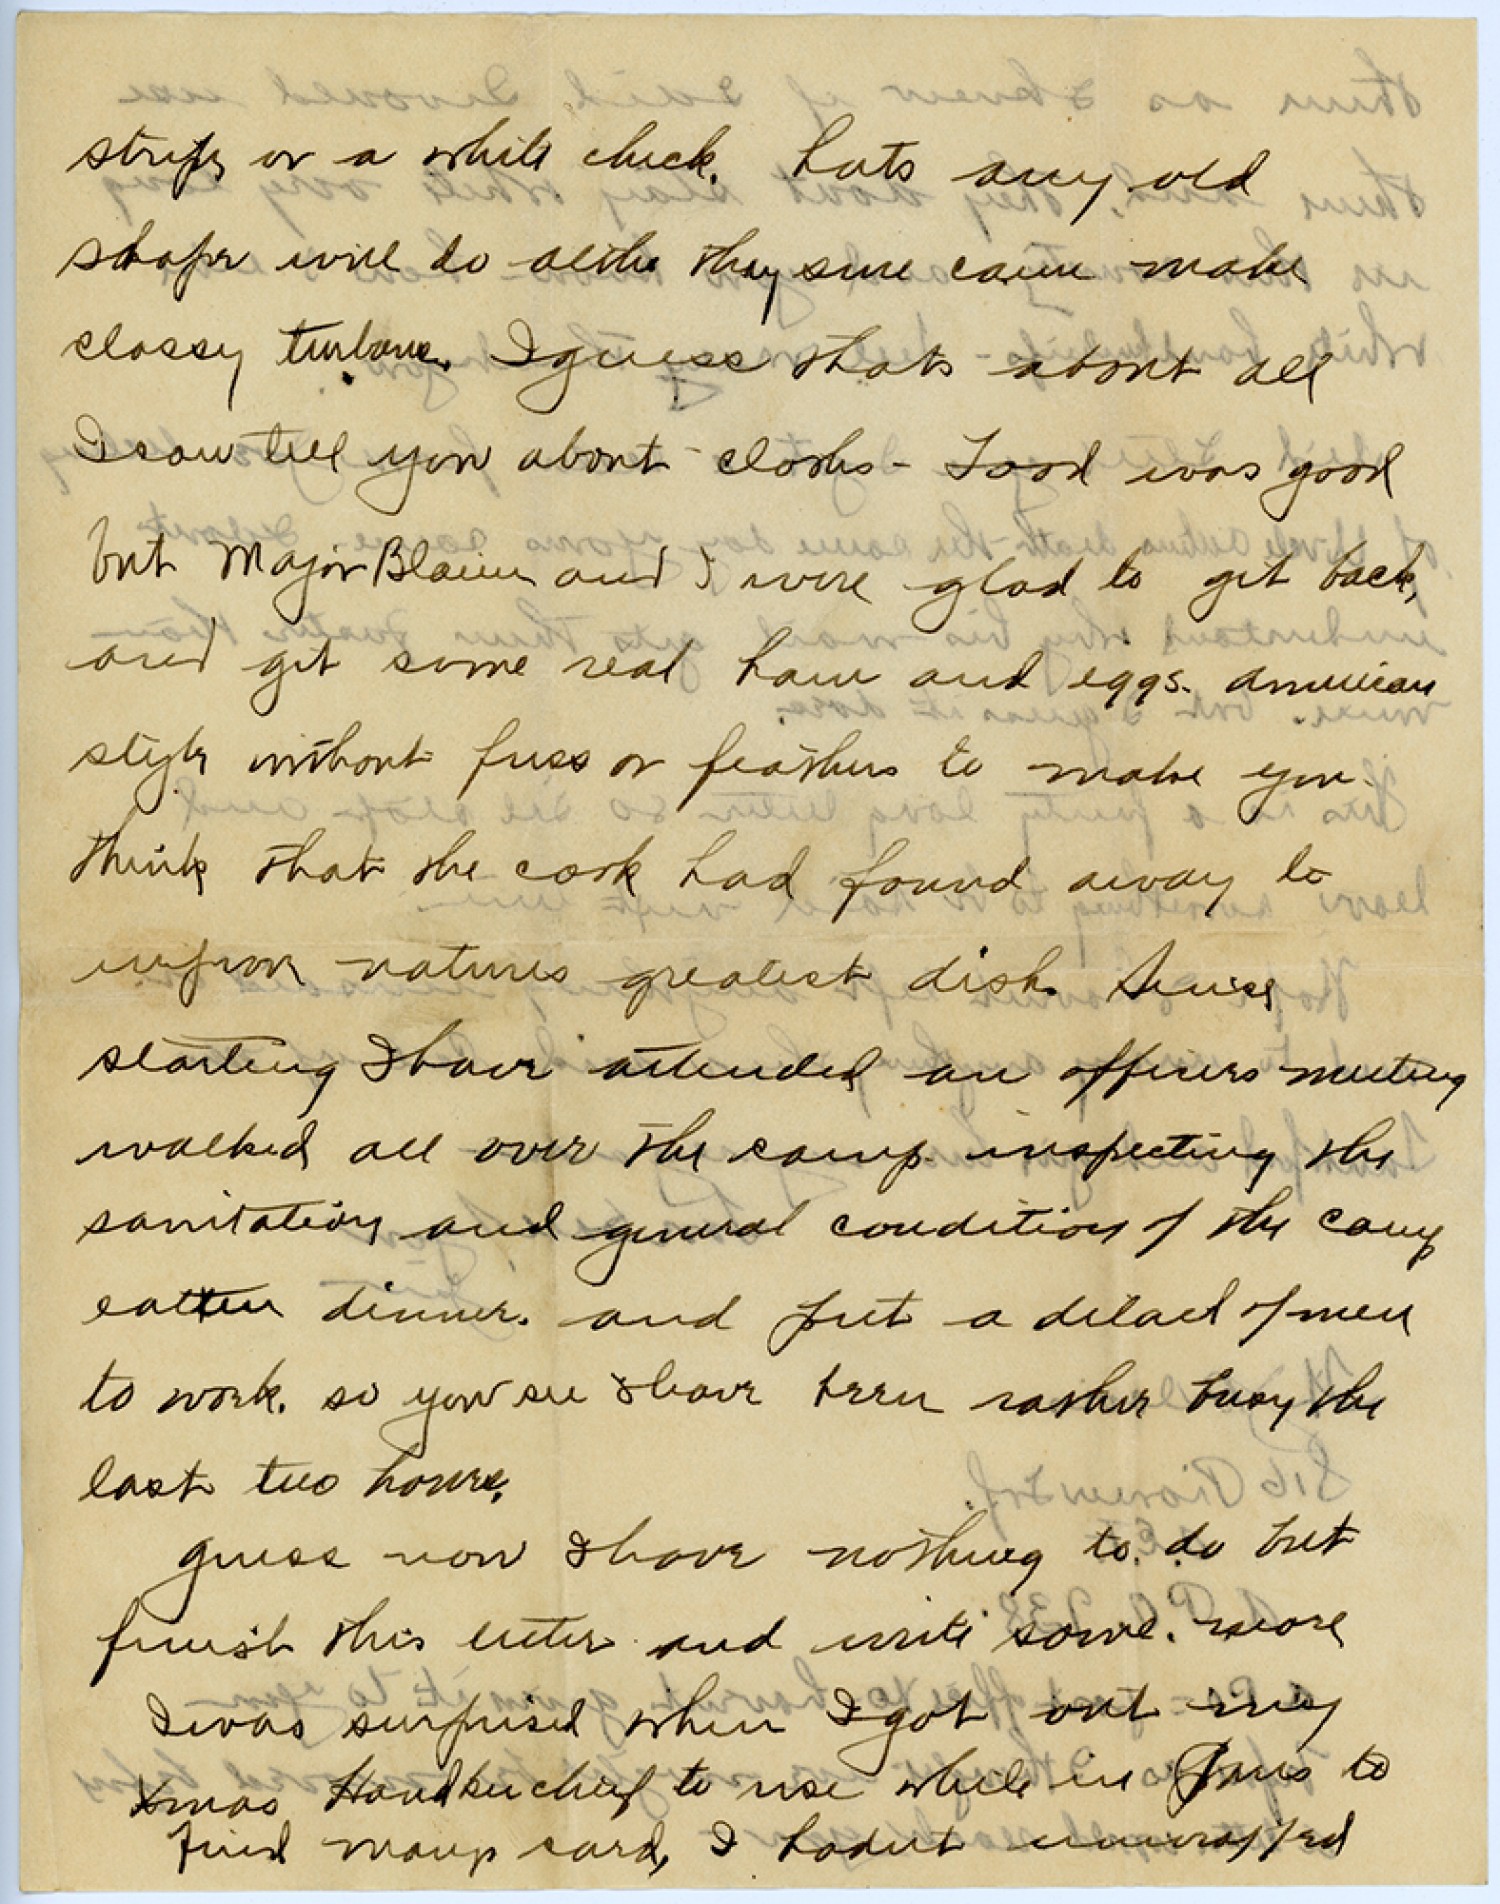 stripe or a white check. hats any old
shape will do altho they sure caun make
classy turbans. I guess thats about all
I can tell you about cloths - Food was good
but Major Blaum and I were glad to get back,
and get some real ham and eggs. american
style without fuss or feathers to make you
think that the cook had found away to
improve natures greatest dish. Since
starting I have attended an officers meeting
walked all over the camp. inspecting the
sanitation and general condition of the camp
eatten dinner. and put a detail of men
to work. so you see I have been rather busy the
last two hours.
guess now I have nothing to do but
finish this letter and write some. more
I was surprised when I got out my
Xmas Handkerchief to use while in Paris to
find card, I hadnt unwrapped